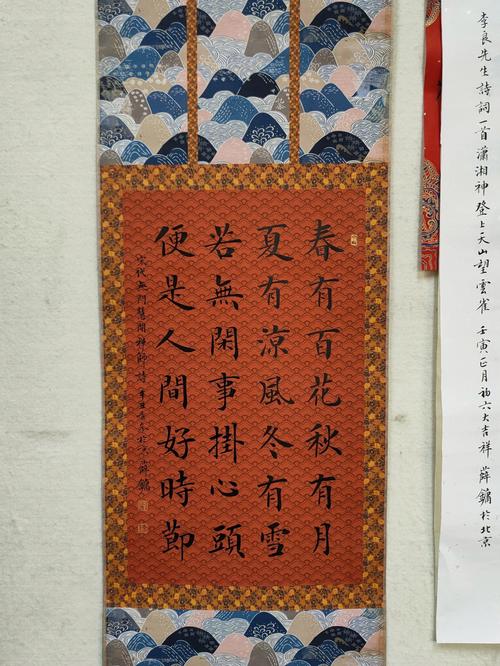 李良先生詩詞一首瀟湘神登上天山望雲雀 壬寅正月初六大吉祥 薛於北京
春有百花秋有月
夏有涼風冬有雪
若無閑事掛心頭
便是人間好時節
宋代無門慧開禅師詩 辛丑冬於京 薛